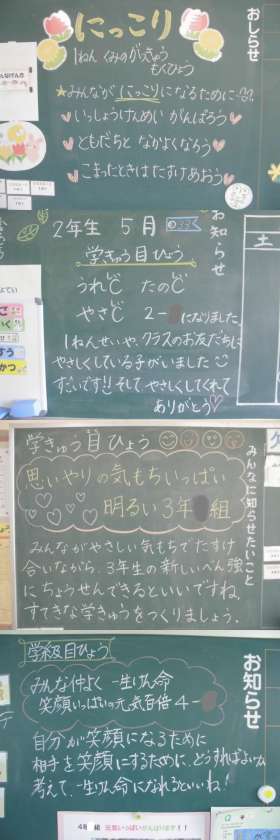 おしらせ
にっこり
1ねん くみのがっきゅう
もくひょう
★みんながにっこりになるために…
いっしょうけんめい がんばろう
ともだちと なかよくなろう
こまったときはたすけあおう
お知らせ
2年生 5月
学きゅう目ひょう
うれじ たのじ
やさじ 2－ になりました
1ねんせいや、クラスのお友だちに
やさしくしている子がいました
すごいです!!そして やさしくしてくれて
ありがとう♡
土
みんなに知らせたいこと
学きゅう目ひょう
思いやりの気もちいっぱい
明るい3年 組
みんながやさしい気もちでたすけ
合いながら、3年生の新しいべん強
にちょうせんできるといいですね。
すてきな学きゅうをつくりましょう。
お知らせ
学級目ひょう
みんな仲よく 一生けん命
笑顔いっぱいの元気百倍 4－
自分が笑顔になるために
相手を笑顔にするために、どうすればよいか
考えて、一生けん命になれるといいね!
4年 組 元気いっぱいがんばります!!